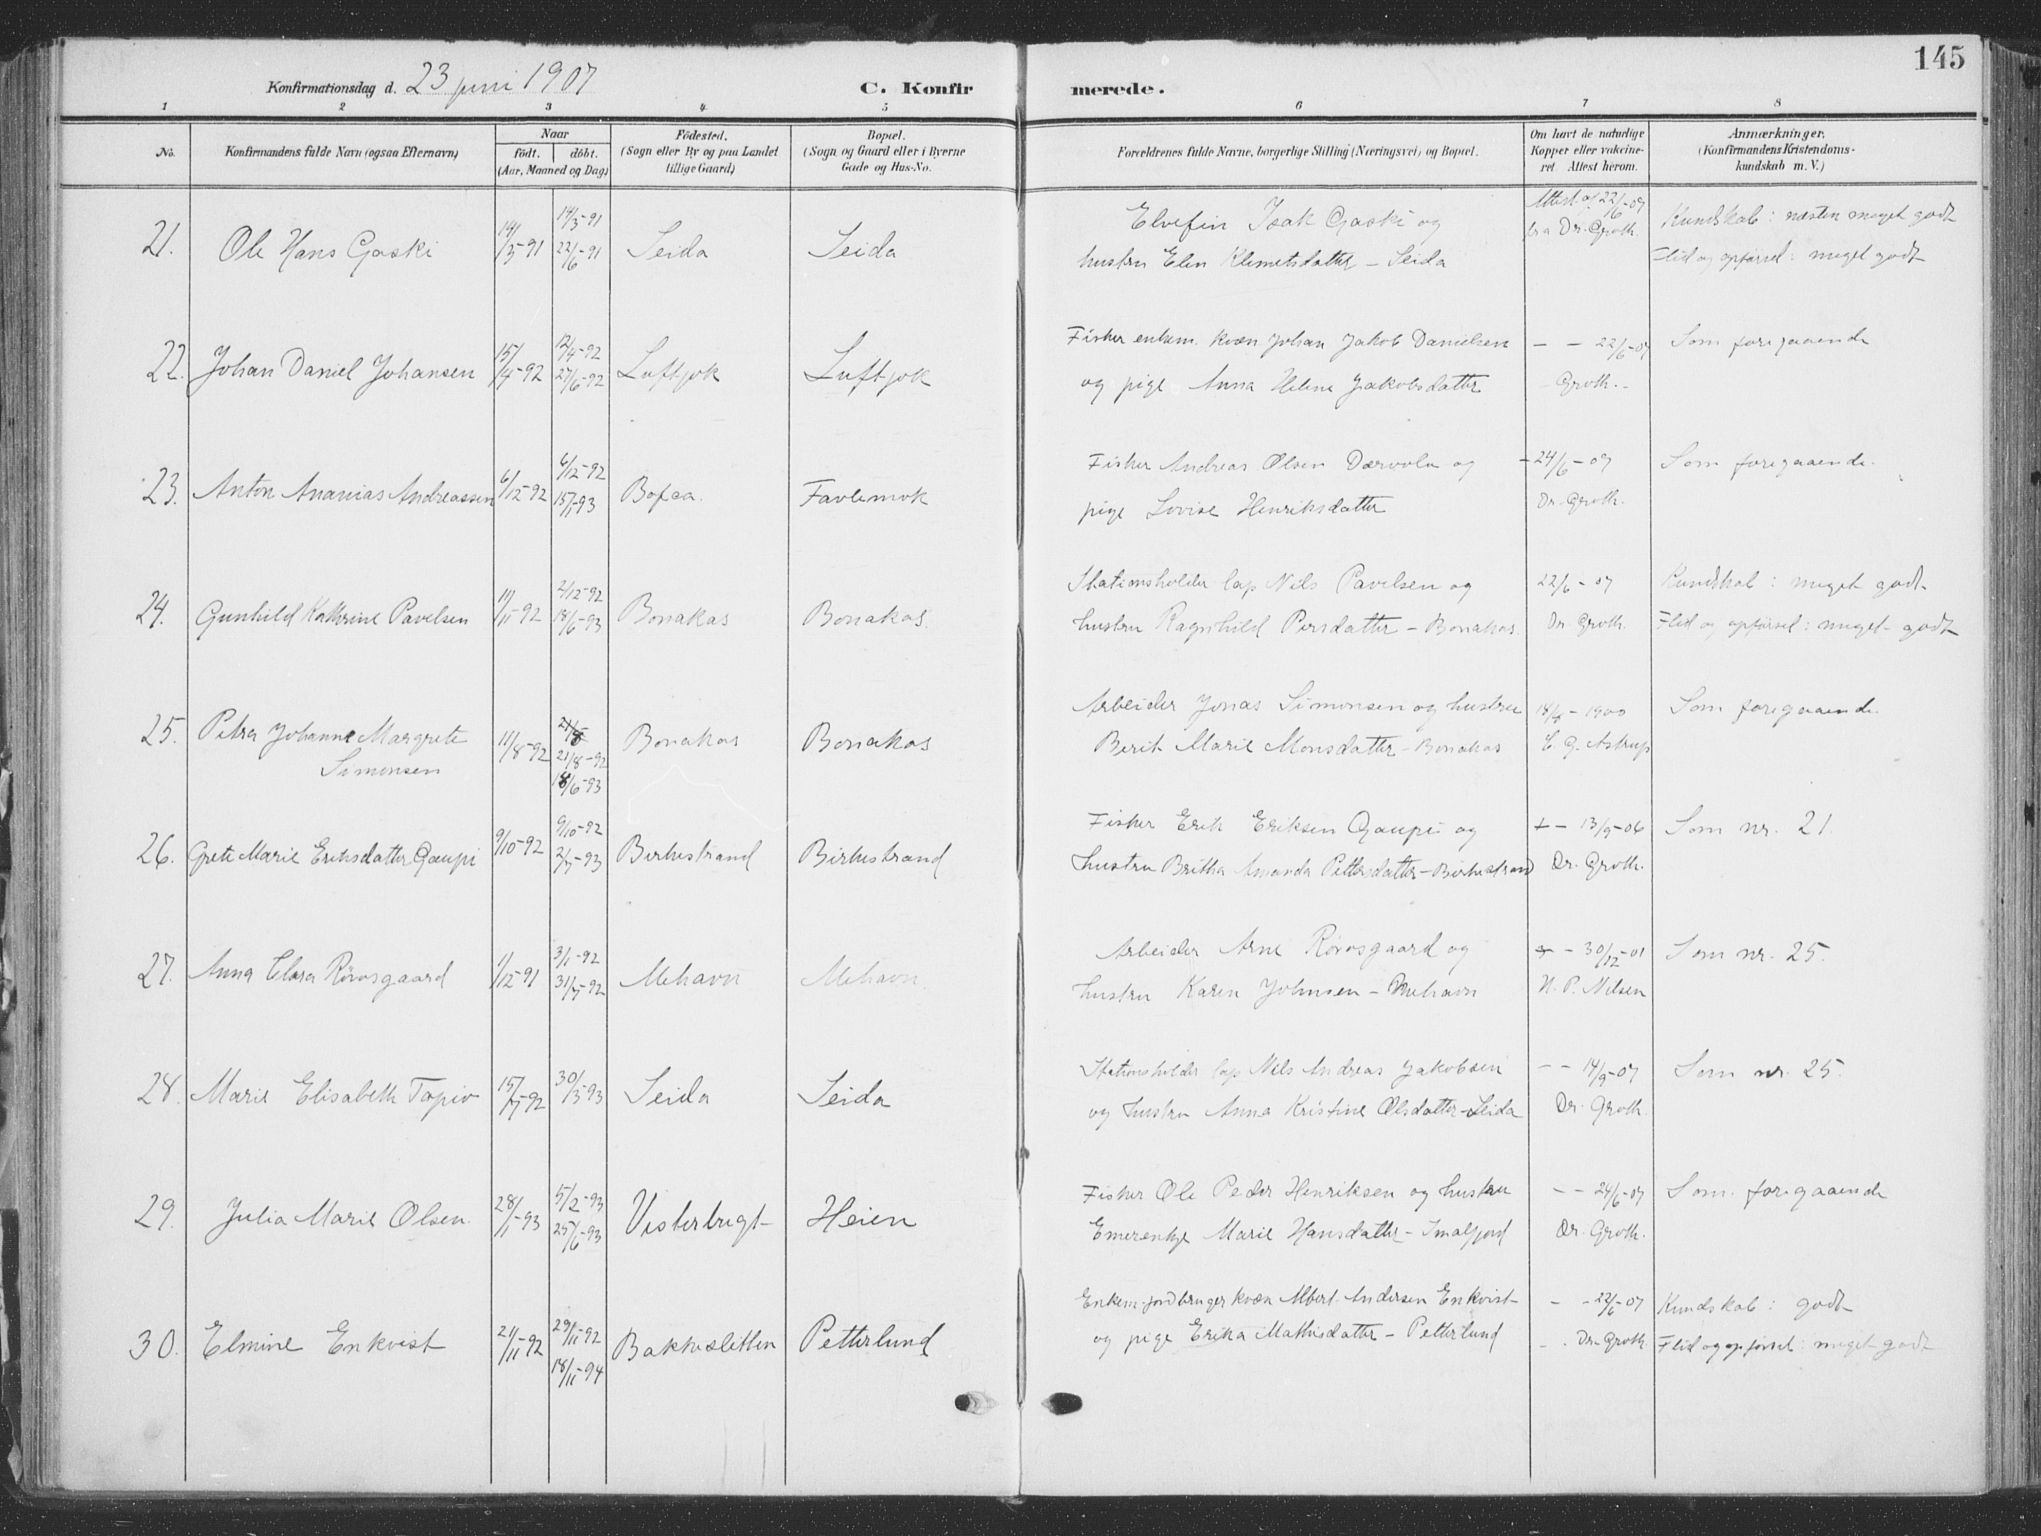 145
Konfirmationsdag d. 23 juni 1907
C. Konfirmerede.
1 2 3 4 5 6 7 8
No.
Konfirmandens fulde Navn (ogsaa Efternavn)
Naar
födt. döbt.
(Aar, Maaned og Dag)
Födested.
(Sogn eller By og paa Landet
tillige Gaard)
Bopæl.
(Sogn og Gaard eller i Byerne
Gade og Hus-No.
Forældrenes fulde Navne, borgerlige Stilling (Næringsvei) og Bopæl.
Om havt de naturlige
Kopper eller vakcine-
ret Attest herom.
Anmærkninger.
(Konfirmandens Kristendoms-
kundskab m. V.)
21. Ole Hans Gaski 14/3-91 14/3-91 22/6-91 Seida Seida
Elvefin Isak Gaski og
hustru Elen Klemetsdatter - Seida
Attest af 22/6-07
fra Dr. Groth.
Kundskab: næsten meget godt
Flid og opførsel: meget godt
22. Johan Daniel Johansen 15/4-92 12/4-92 27/6-92 Luftjok Luftjok
Fisker enkem. kvæn Johan Jakob Danielsen
og pige Anna Helene Jakobsdatter
- - 22/6-07
Groth.
Som foregaaende
23. Anton Ananias Andreassen 6/12-92 6/12-92 15/1-93 Favlemok
Fisker Andreas Olsen og
pige Lovise Henriksdatter
24/6-07
Dr. Groth.
Som foregaaende.
24. Gunhild Kathrine Pavelsen 11/11-92 2/12-92 18/6-93 Bonakas Bonakas.
Stationsholder lap Nils Pavelsen og
hustru Ragnhild Persdatter - Bonakas.
22/6-07
Dr. Groth.
Kundskab: meget godt.
Flid og opførsel: meget godt
25. Petra Johanne Margrete
Simonsen
11/8-92 21/8 21/8-92 18/6-93 Bonakas Bonakas
Arbeider Jonas Simonsen og hustru
Berit Marie Monsdatter - Bonakas
1900
C. G. Astrup
Som foregaaende.
26. Grete Marie Eriksdatter Gaupi 9/10-92 9/10-92 2/7-93 Birkestrand Birkestrand
Fisker Erik Eriksen Gaupi og
hustru Britha Amanda Pettersdatter - Birkestrand
13/9-06
Dr. Groth.
Som nr. 21.
27. Anna Clara Rørosgaard 1/12-91 3/1-92 31/7-92 Mehavn Mehavn
Arbeider Arne Rørosgaard og
hustru Karen Johnsen - Mehavn
30/12-01
N. P. Nilsen
Som nr. 25.
28. Marie Elisabeth Tapio 15/7-92 30/3-93 Seida Seida
Stationsholder lap Nils Andreas Jakobsen
og hustru Anna Kristine Olsdatter - Seida
- - 14/9-07
Dr. Groth.
Som nr. 25.
29. Julia Marie Olsen. 28/1-93 5/2-93 25/6-93 Visterbugt Heien
Fisker Ole Peder Henriksen og hustru
Emerentze Marie Hansdatter - Smalfjord
- - 24/6-07
Dr. Groth.
Som foregaaende
30. Elmine Enkvist 21/11-92 29/11-92 18/11-94 Bakkesletten Petterlund
Enkem. jordbruger kvæn Albert Andersen Enkvist
og pige Erika Mathisdatter - Petterlund
- - 22/6-07
Dr. Groth
Kundskab: godt
Flid og opførsel: meget godt